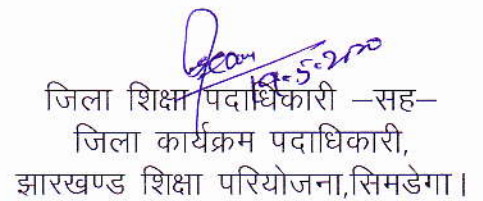 19-5-2020
जिला शिक्षा पदाधिकारी –सह–
जिला कार्यक्रम पदाधिकारी,
झारखण्ड शिक्षा परियोजना,सिमडेगा।